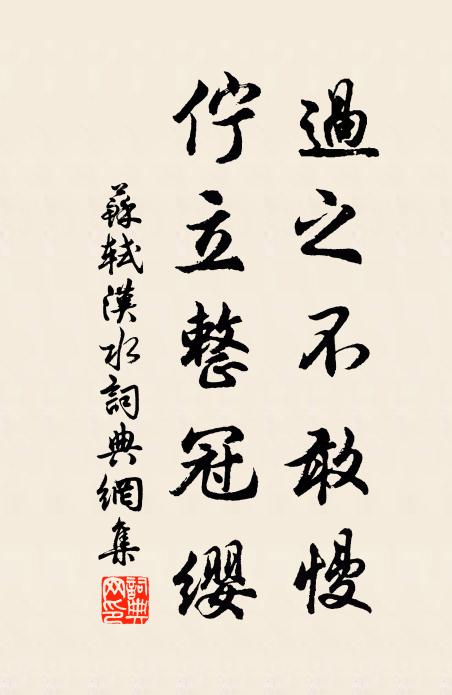 過之不敢慢
佇立整冠纓
蘇軾漢水詞典網集
詞典网印